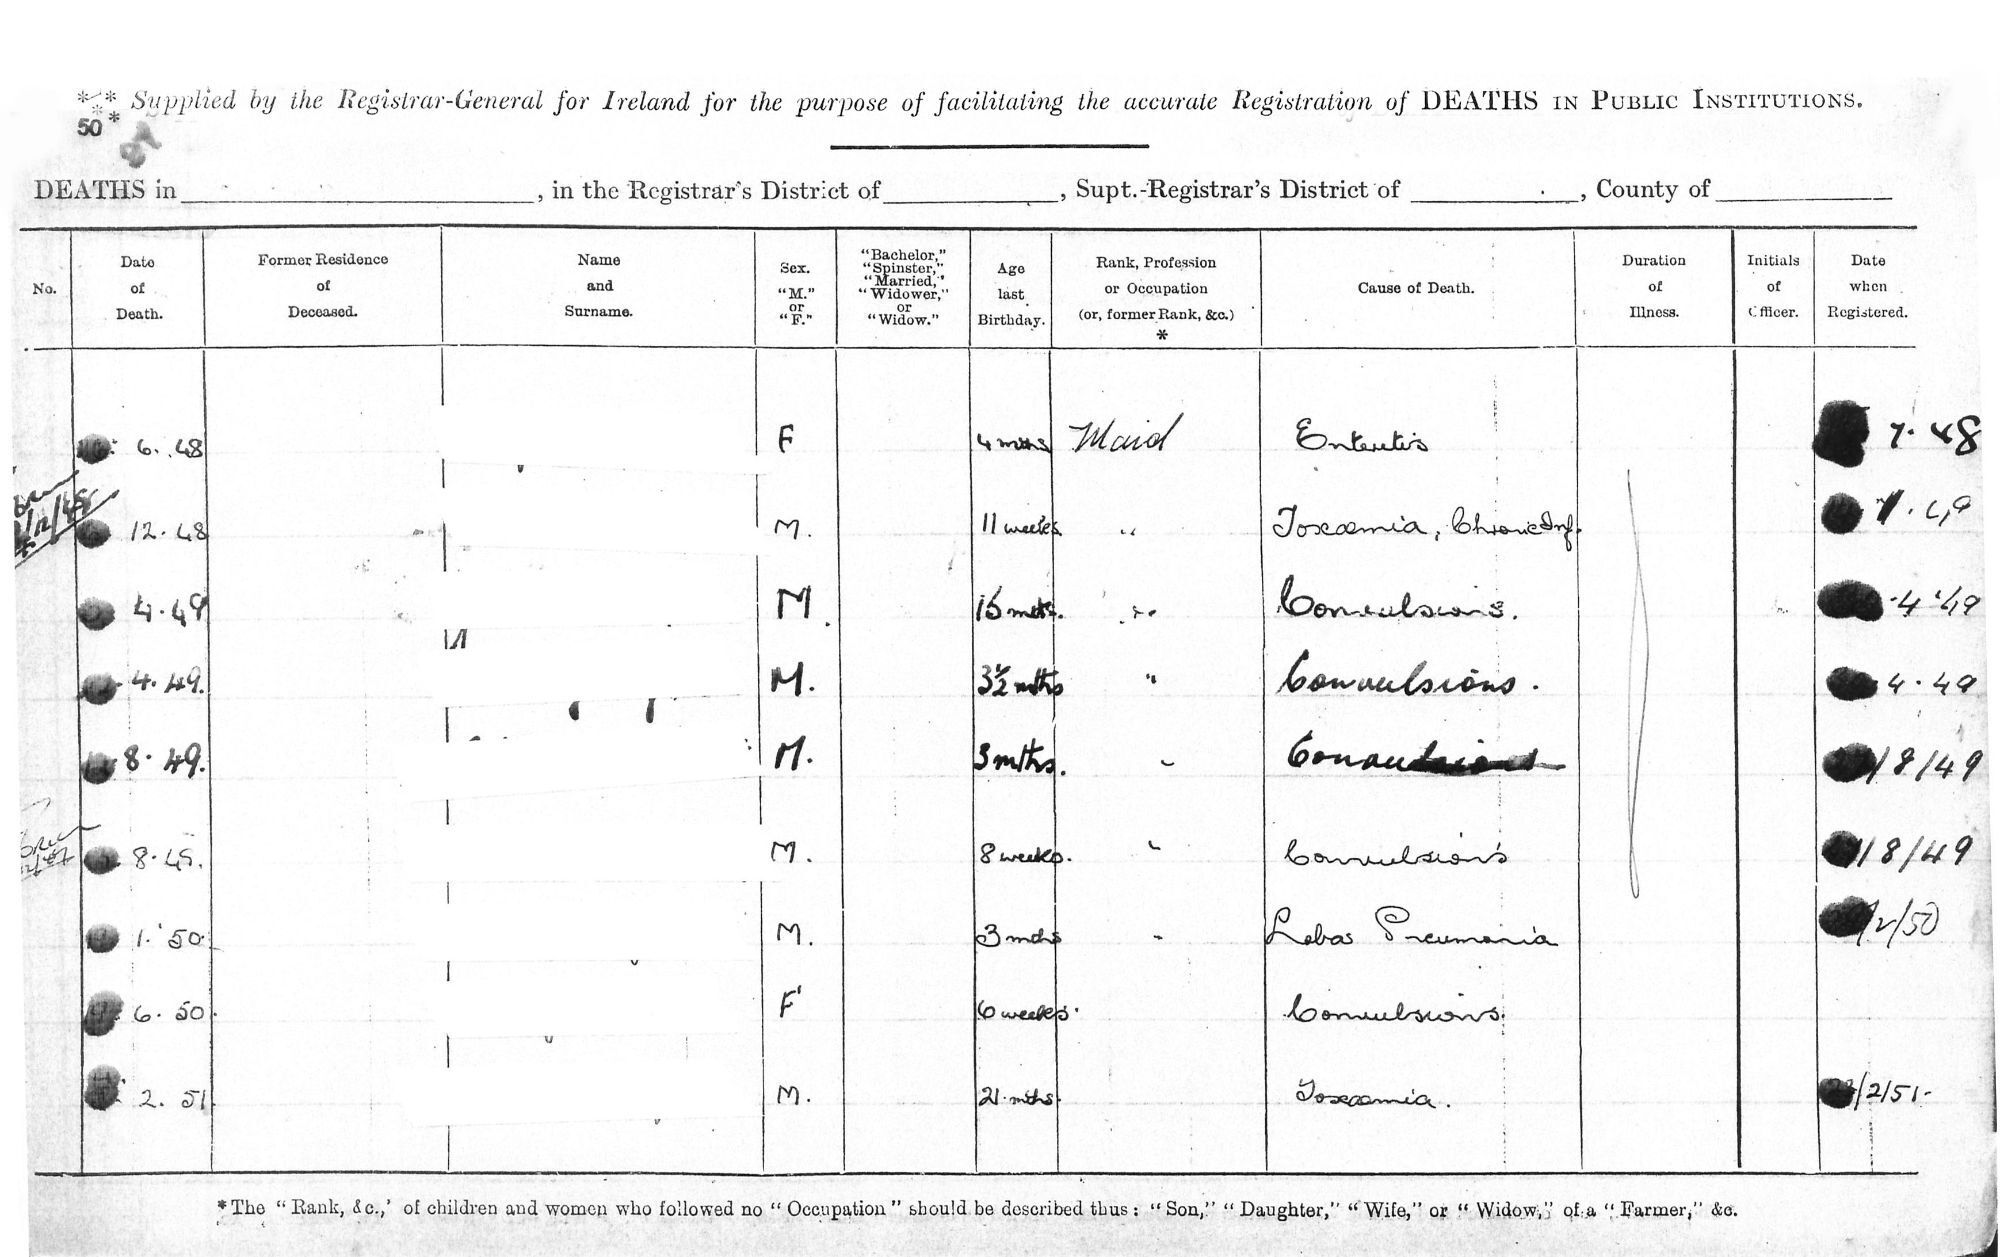 Supplied by the Registrar-General for Ireland for the purpose of facilitating the accurate Registration of DEATHS IN PUBLIC INSTITUTIONS.
50
DEATHS in , in the Registrar's District of , Supt.-Registrar's District of , County of
No. Date of Death. Former Residence of Deceased. Name and Surname. Sex. "M." or "F." "Bachelor," "Spinster," "Married," "Widower," or "Widow." Age last Birthday. Rank, Profession or Occupation (or, former Rank, &c.) * Cause of Death. Duration of Illness. Initials of Officer. Date when Registered.
6. 48 F 4 mths Maid Enteritis 7. 48
12. 48 M. 11 weeks " Toxaemia, Chronic Inf. 1. 49
4. 49 M 15 mths. " Convulsions. 4. 49
4. 49. M. 3½ mths " Convulsions. 4. 49
8. 49. M. 3 mths. " Convulsions /8/49
8. 49. M. 8 weeks. " Convulsions /8/49
1. 50. M. 3 mths " Lobar Pneumonia /2/50
6. 50. F 6 weeks. Convulsions.
2. 51 M. mths. Toxaemia. /2/51.
*The "Rank, &c.,' of children and women who followed no "Occupation" should be described thus: "Son," "Daughter," "Wife," or "Widow," of a "Farmer," &c.